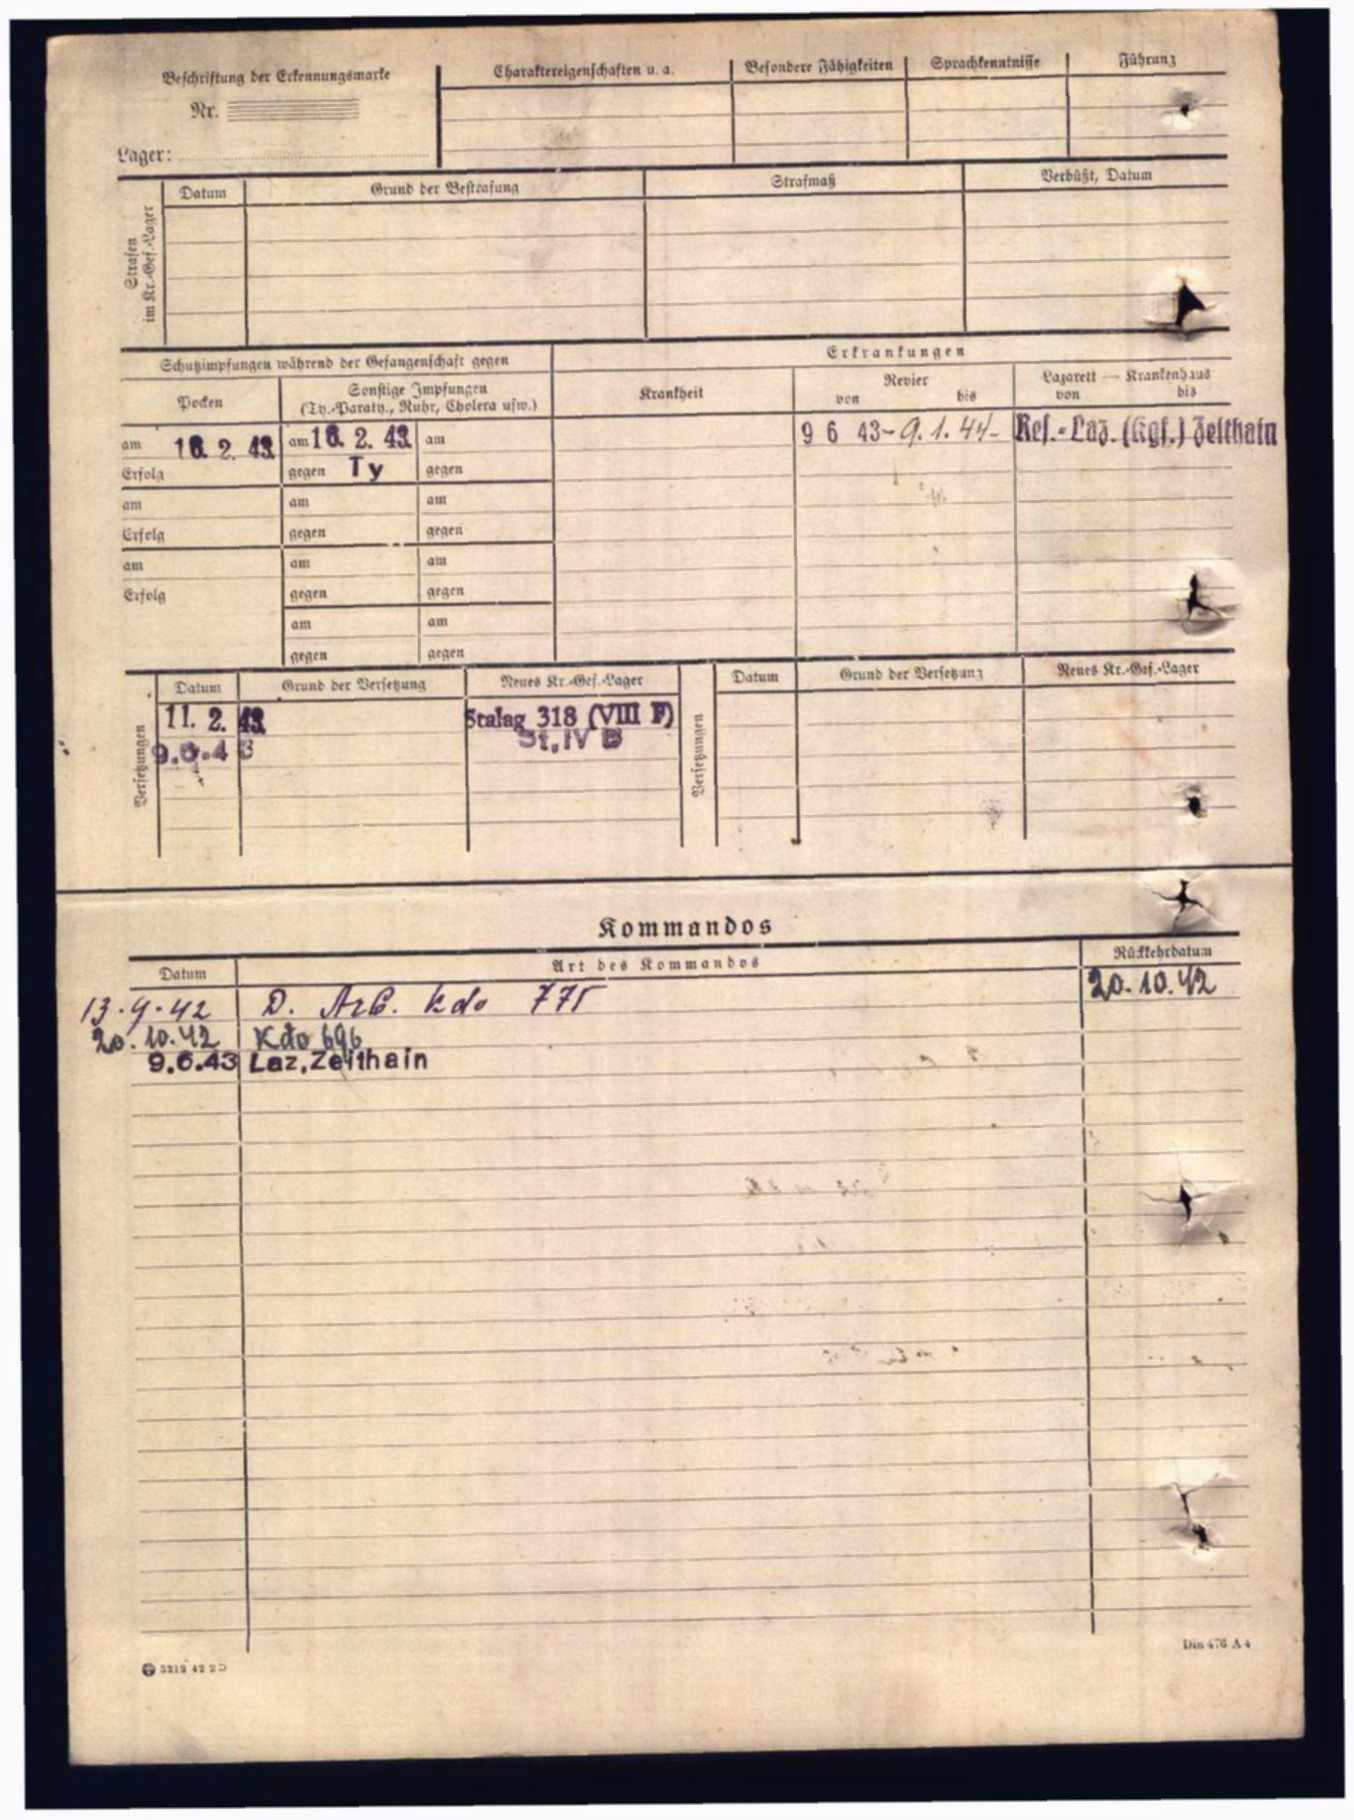 Beschriftung der Erkennungsmarke
Nr.
Lager:
Charaktereigenschaften u. a.
Besondere Fähigkeiten
Sprachkenntnisse
Führung
Strafen im Kr.-Gef.-Lager
Datum
Grund der Bestrafung
Strafmaß
Verbüßt, Datum
Schutzimpfungen während der Gefangenschaft gegen
Erkrankungen
Pocken
Sonstige Impfungen
(Ty.-Paraty., Ruhr, Cholera usw.)
Krankheit
Revier
von bis
Lazarett — Krankenhaus
von bis
am 16. 2. 43. am 16. 2. 43. am
9 6 43 - 9. 1. 44 - Res.-Laz. (Kgf.) Zeithain
Erfolg gegen Ty gegen
am am am
Erfolg gegen gegen
am am am
Erfolg gegen gegen
am am
gegen gegen
Versetzungen
Datum Grund der Versetzung Neues Kr.-Gef.-Lager
11. 2. 43. Stalag 318 (VIII F)
9.6.43 St. IV B
Versetzungen
Datum Grund der Versetzung Neues Kr.-Gef.-Lager
Kommandos
Datum Art des Kommandos Rückkehrdatum
13.9.42 D. Arb. kdo 775 20.10.42
20.10.42 Kdo 696
9.6.43 Laz. Zeithain
3212 42 2 D
Din 476 A 4